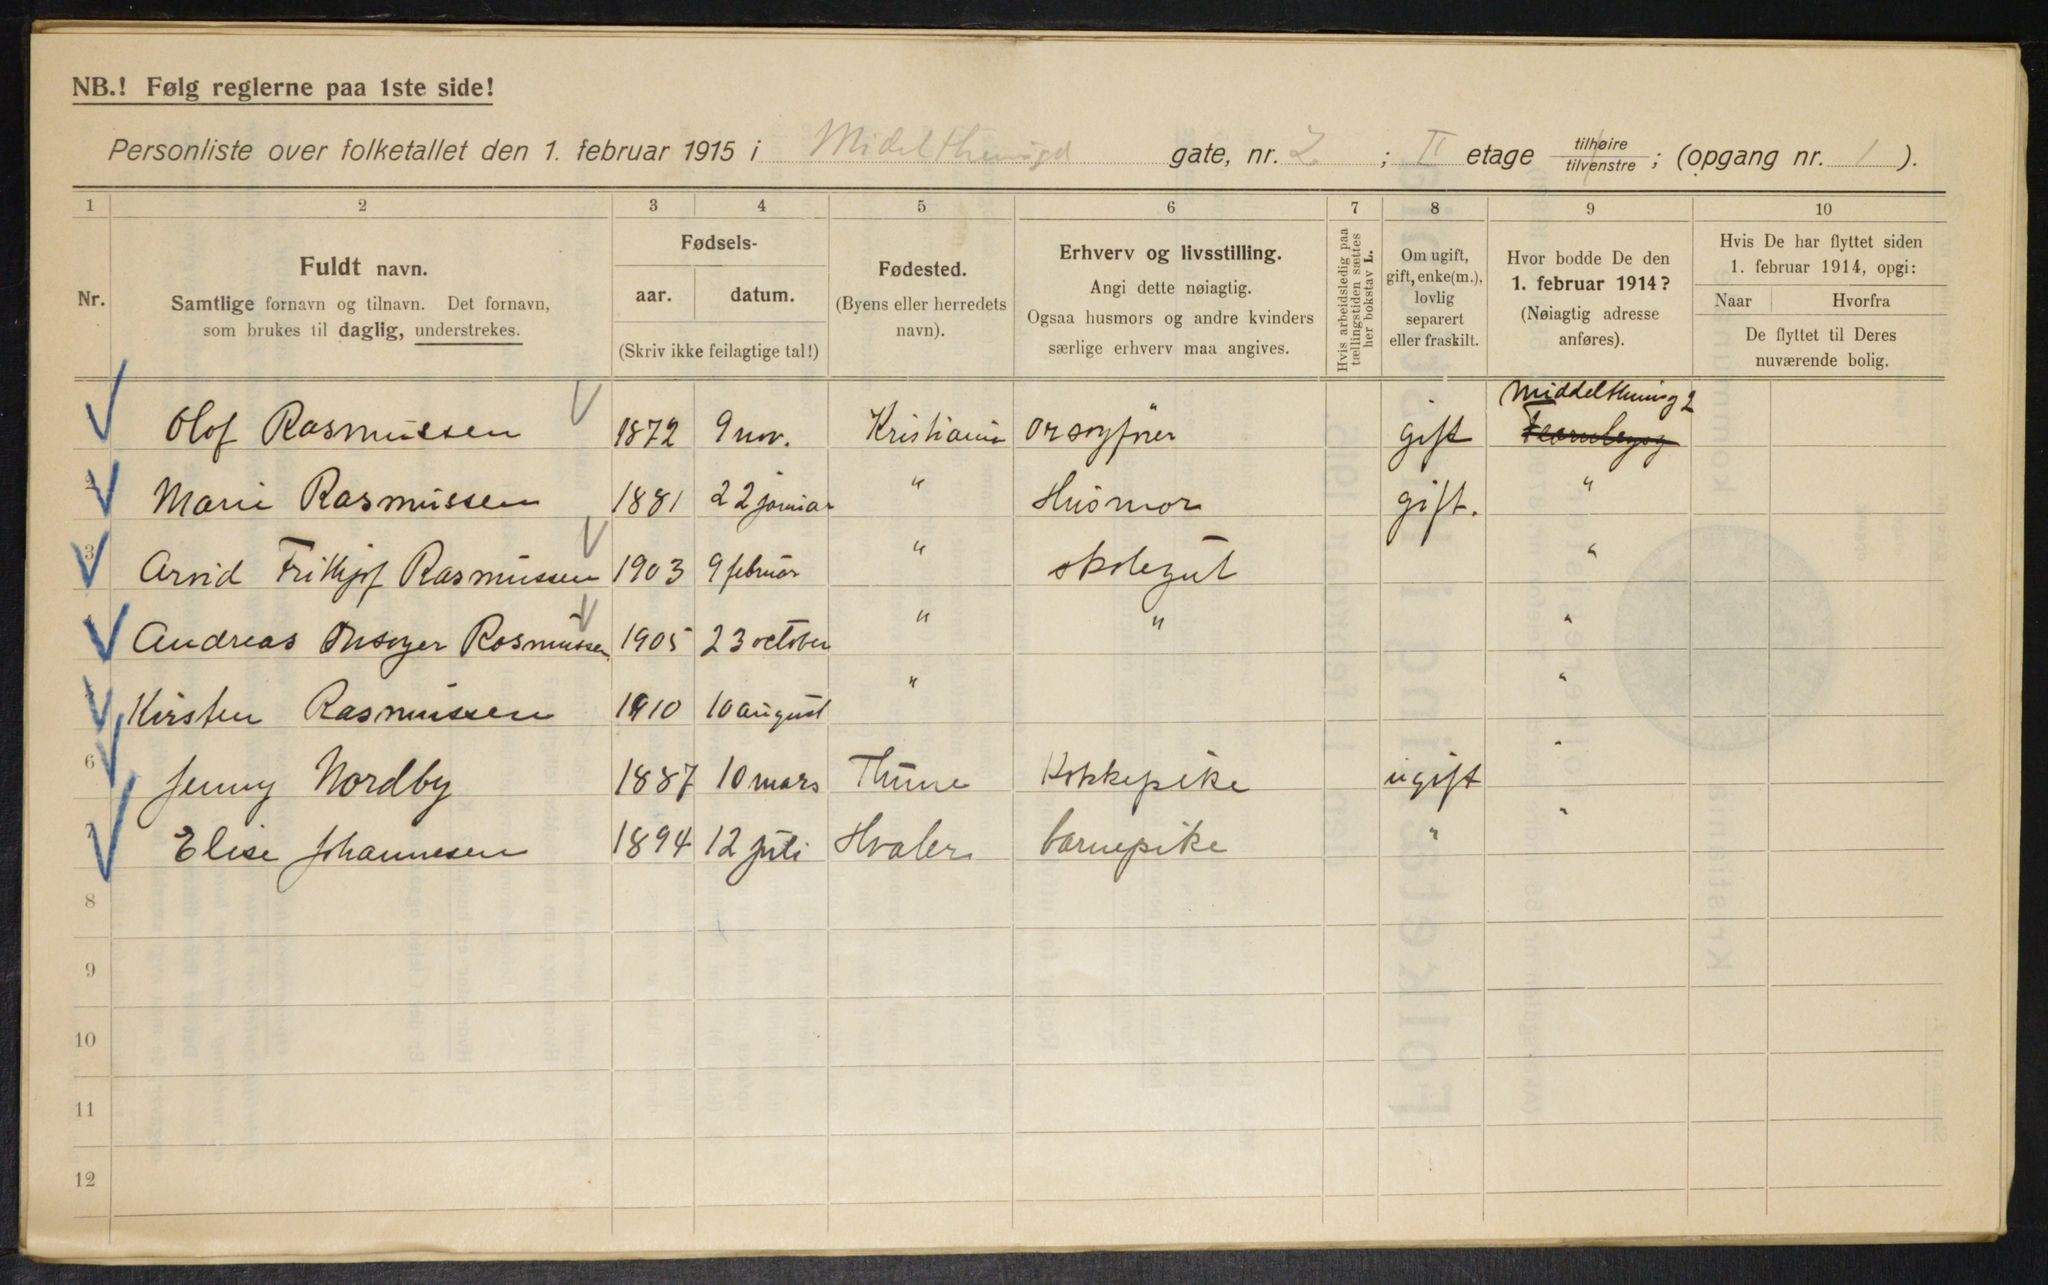 NB.! Følg reglerne paa 1ste side!
Personliste over folketallet den 1. februar 1915 i Midelthunsgd gate, nr. 2 ; II etage tilhøire / tilvenstre ; (opgang nr. 1 ).
1 2 3 4 5 6 7 8 9 10
Nr.
Fuldt navn.
Samtlige fornavn og tilnavn. Det fornavn,
som brukes til daglig, understrekes.
Fødsels-
aar. datum.
(Skriv ikke feilagtige tal!)
Fødested.
(Byens eller herredets
navn).
Erhverv og livsstilling.
Angi dette nøiagtig.
Ogsaa husmors og andre kvinders
særlige erhverv maa angives.
Hvis arbeidsledig paa
tællingstiden sættes
her bokstav L.
Om ugift,
gift, enke(m.),
lovlig
separert
eller fraskilt.
Hvor bodde De den
1. februar 1914?
(Nøiagtig adresse
anføres).
Hvis De har flyttet siden
1. februar 1914, opgi:
Naar Hvorfra
De flyttet til Deres
nuværende bolig.
Middelthunsg 2
Olof Rasmussen 1872 9 nov. Kristiania gift
2 Marie Rasmussen 1881 22 januar " Husmor gift. "
3 Arvid Frithjof Rasmussen 1903 9 februar " skolegut "
4 Andreas Onsoyer Rasmussen 1905 23 october " " "
Kirsten Rasmussen 1910 10 august " "
6 Jenny Nordby 1887 10 mars Thune Kokkepike ugift "
7 Elise Johannesen 1894 12 juli Hvaler barnepike " "
8
9
10
11
12